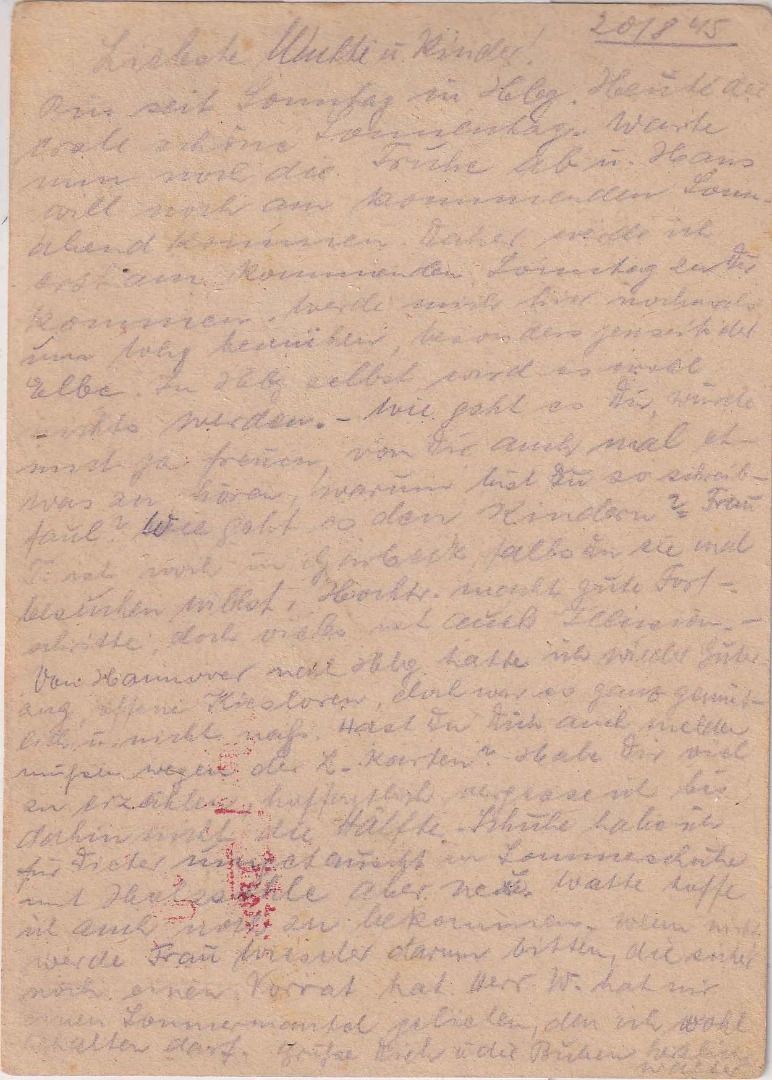 20/8 45
Liebste Mutti u. Kinder!
Bin seit Sonntag in Hbg. Heute der
erste schöne Sonnentag. Warte
nun noch die Truhe ab u. Hans
will noch am kommenden Sonn-
abend kommen. Daher werde ich
erst am kommenden Sonntag zu Dir
kommen. Werde mich hier nochmals
um Whg bemühen, besonders jenseits der
Elbe. In Hbg selbst wird es wohl
nichts werden. – Wie geht es Dir, würde
mich ja freuen, von Dir auch mal et-
was zu hören, warum bist Du so schreib-
faul? Wie geht es den Kindern? Frau
T. ist noch in falls Du sie mal
besuchen willst. macht gute Fort-
schritte, doch vieles ist auch Illusion. –
Von Hannover nach Hbg hatte ich wieder Güter-
zug, offene Kiesloren, doch war es ganz gemüt-
lich u. nicht naß. Hast Du Dich auch melden
müssen wegen der L-Karten? Habe Dir viel
zu erzählen, hoffentlich vergesse ich bis
dahin nicht die Hälfte. Schuhe habe ich
für Dieter umgetauscht in Sommerschuhe
mit Holzsohle aber neu. Watte hoffe
ich auch noch zu bekommen. Wenn nicht
werde Frau darum bitten, die sicher
noch einen Vorrat hat. Herr W. hat mir
einen Sommermantel geliehen, den ich wohl
behalten darf. Grüße Dich u die Buben herzlich
Walter